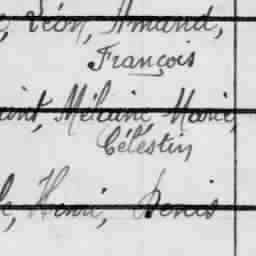 Léon, Amand,
François
Mélaine, Marie,
Célestin
Henri, Denis